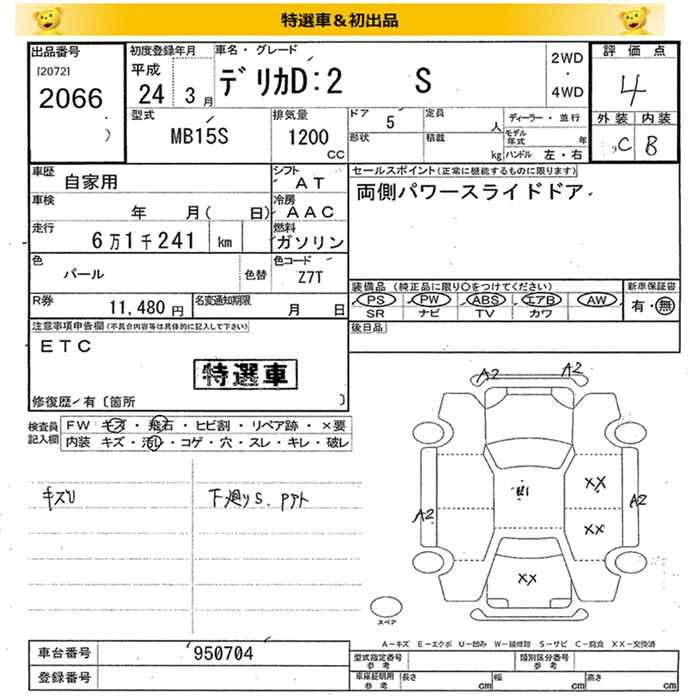 特選車＆初出品
出品番号 初度登録年月 車名・グレード 2WD・4WD 評価点
[2072] 平成
2066 24 3月 デリカD:2 S 4
型式 排気量 ドア 5 定員 人 ディーラー・並行 外装 内装
MB15S 1200 CC 形状 積載 kg モデル年式 年 C B
ハンドル 左・右
車歴 自家用 シフト AT セールスポイント(正常に機能するものに限ります)
車検 年 月( 日) 冷房 AAC 両側パワースライドドア
走行 6万1千241 km 燃料 ガソリン
色 パール 色替 色コード Z7T
装備品 (純正品に限り○をつけてください) 新車保証書
PS PW ABS エアB AW 有・無
SR ナビ TV カワ
R券 11,480円 名変通知期限 月 日
注意事項申告欄(不具合内容等は具体的に記入して下さい) 後日品
ETC
特選車
修復歴/有〔箇所 〕
検査員記入欄 FW キズ・飛石・ヒビ割・リペア跡・×要
内装 キズ・汚レ・コゲ・穴・スレ・キレ・破レ
キズU 下廻りS.
A2 A2
A2 XX A2
XX
XX
スペア
A−キズ E−エクボ U−凹み W−補修跡 S−サビ C−腐食 XX−交換済
車台番号 950704 型式指定番号 参考 類別区分番号 参考
登録番号 車庫証明用 参考 長さ cm 幅 cm 高さ cm